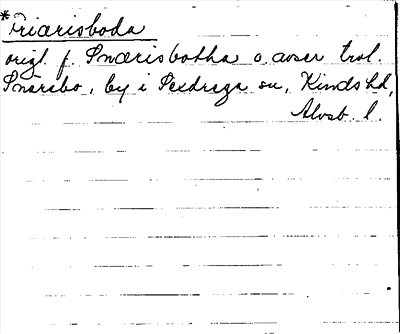 *Friarisboda
origl. f. Snærisbotha o. avser trol.
Snärsbo, by i Sexdrega sn, Kinds hd,
Älvsb. l.